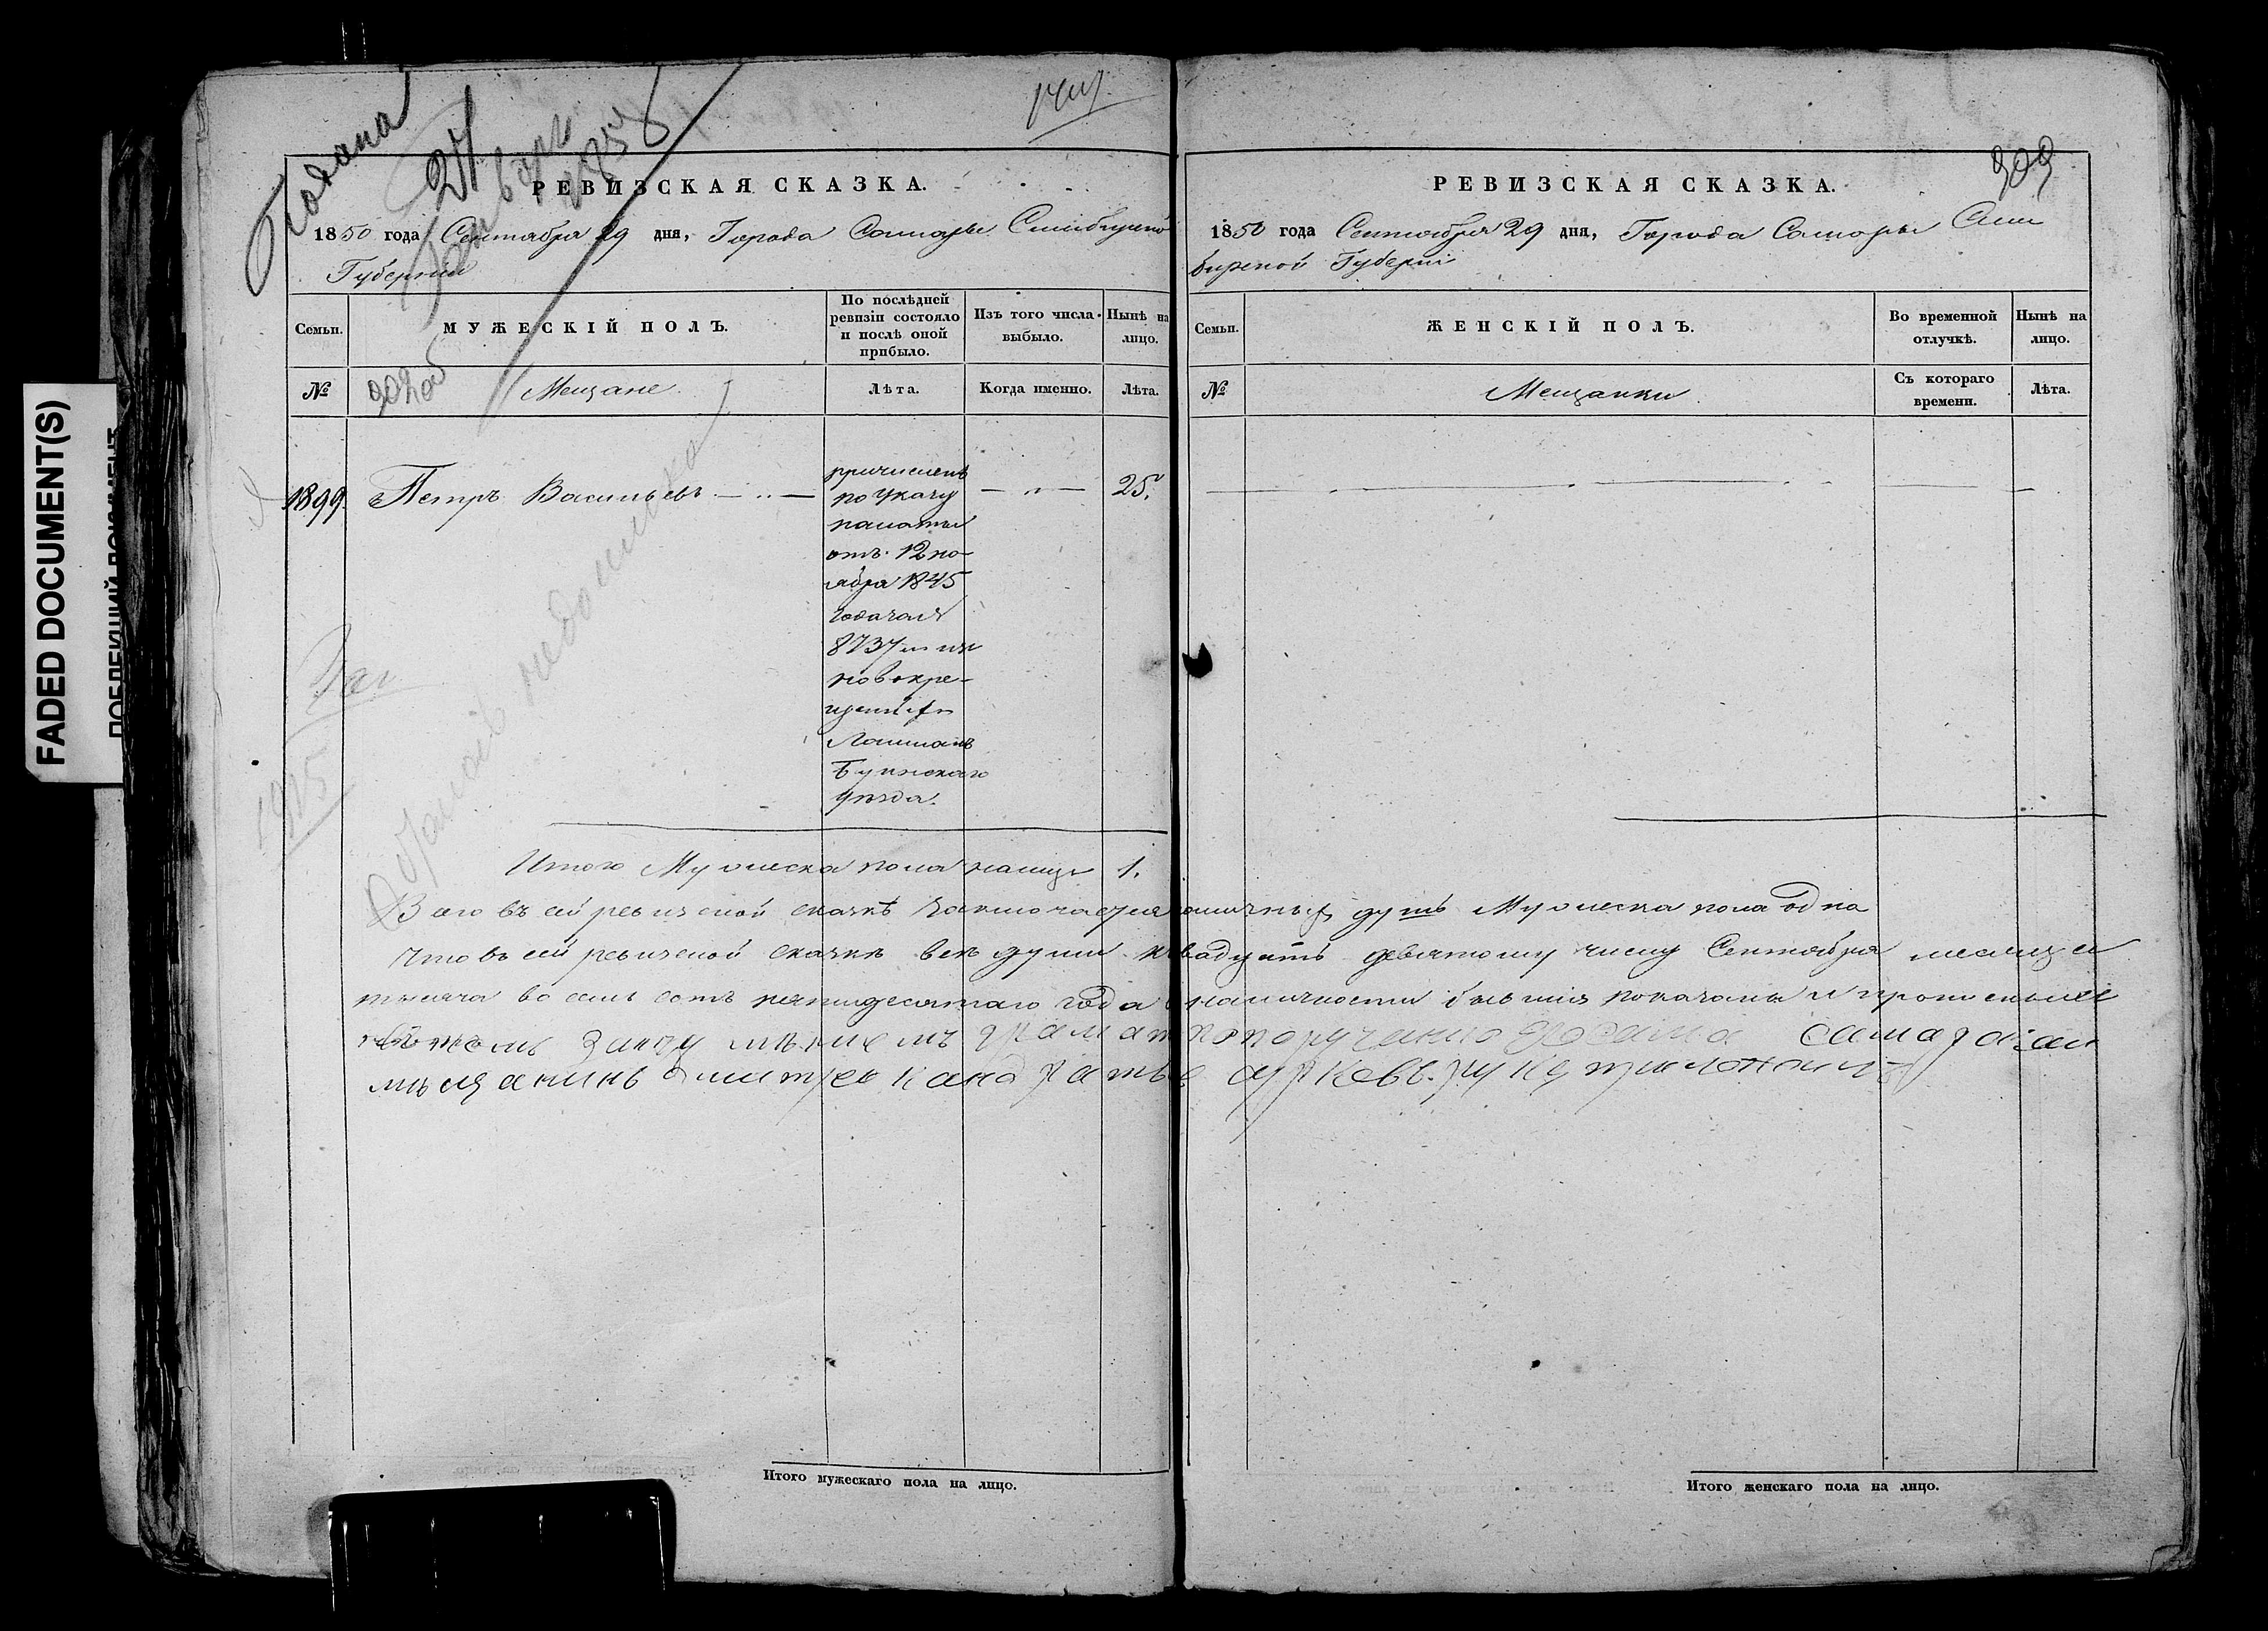 FADED DOCUMENT(S)
Подана
27
Января
1858
РЕВИЗСКАЯ СКАЗКА.
1850 года Сентября 29 дня, Города Самары Симбирской
Губернии
Семьи.
МУЖЕСКІЙ ПОЛЪ.
По послѣдней
ревизіи состояло
и послѣ оной
прибыло.
Изъ того числа
выбыло.
Нынѣ на
лицо.
№
Мещане
Лѣта.
Когда именно.
Лѣта.
1899. Петръ Васильевъ
25.
причисленъ
по указу
палаты
отъ 12 но-
ября 1845
года за №
8737 из
новокре-
щеныхъ
Лашманъ
Буинскаго
уѣзда.
недоимка
1915
Итого Мужеска пола налицо 1.
РЕВИЗСКАЯ СКАЗКА.
909
1850 года Сентября 29 дня, Города Самары Сим
бирской Губерніи
Семьи.
ЖЕНСКІЙ ПОЛЪ.
Во временной
отлучкѣ.
Нынѣ на
лицо.
№
Мещанки
Съ котораго
времени.
Лѣта.
Всего въ сей ревизской сказкѣ заключается наличныхъ душъ Мужеска пола одна
Что въ сей ревизской сказкѣ всѣ души к двадцать девятому числу Сентября месяца
тысяча восемь сотъ пятидесятаго года в наличности бывшия показаны и прописныхъ
попоручению самарскаи
мѣщанинъ дмитрей канадратьев руку приложилъ
Итого мужескаго пола на лицо.
Итого женскаго пола на лицо.